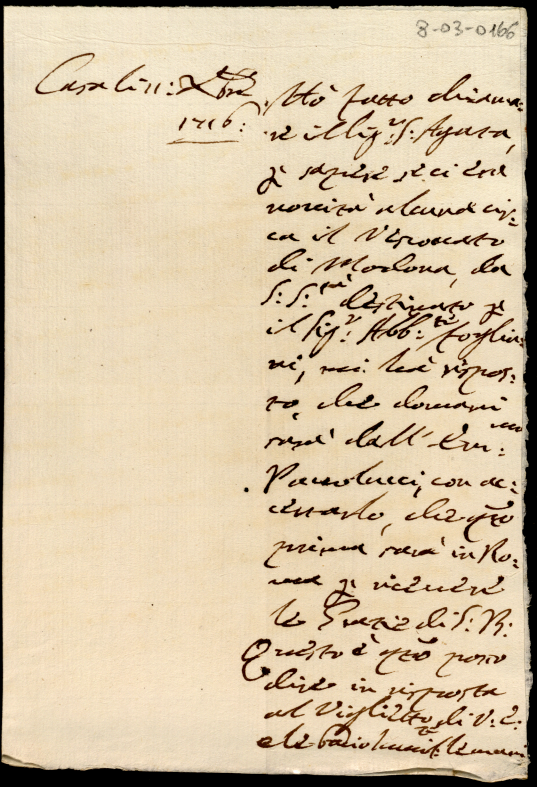 8-03-0166
Casa li 11: Xbre
1716:
Hò fatto chiama:
re il Sigr. S: Agata,
p sapere se ci era
novità alcuna cir:
ca il Vescovato
di Modona, da
S: Stà destinato p
il Sigr. Abb:te Foglia:
ni, mi hà rispos:
to, che domani
sarà dall' Emmo
Paolucci, con ac:
certarlo, che qto
prima sarà in Ro:
ma p ricevere
le Grazie di S: B:
Questo è qto posso
dire in risposta
al Viglietto di V: E:
e le bacio humilte le mani